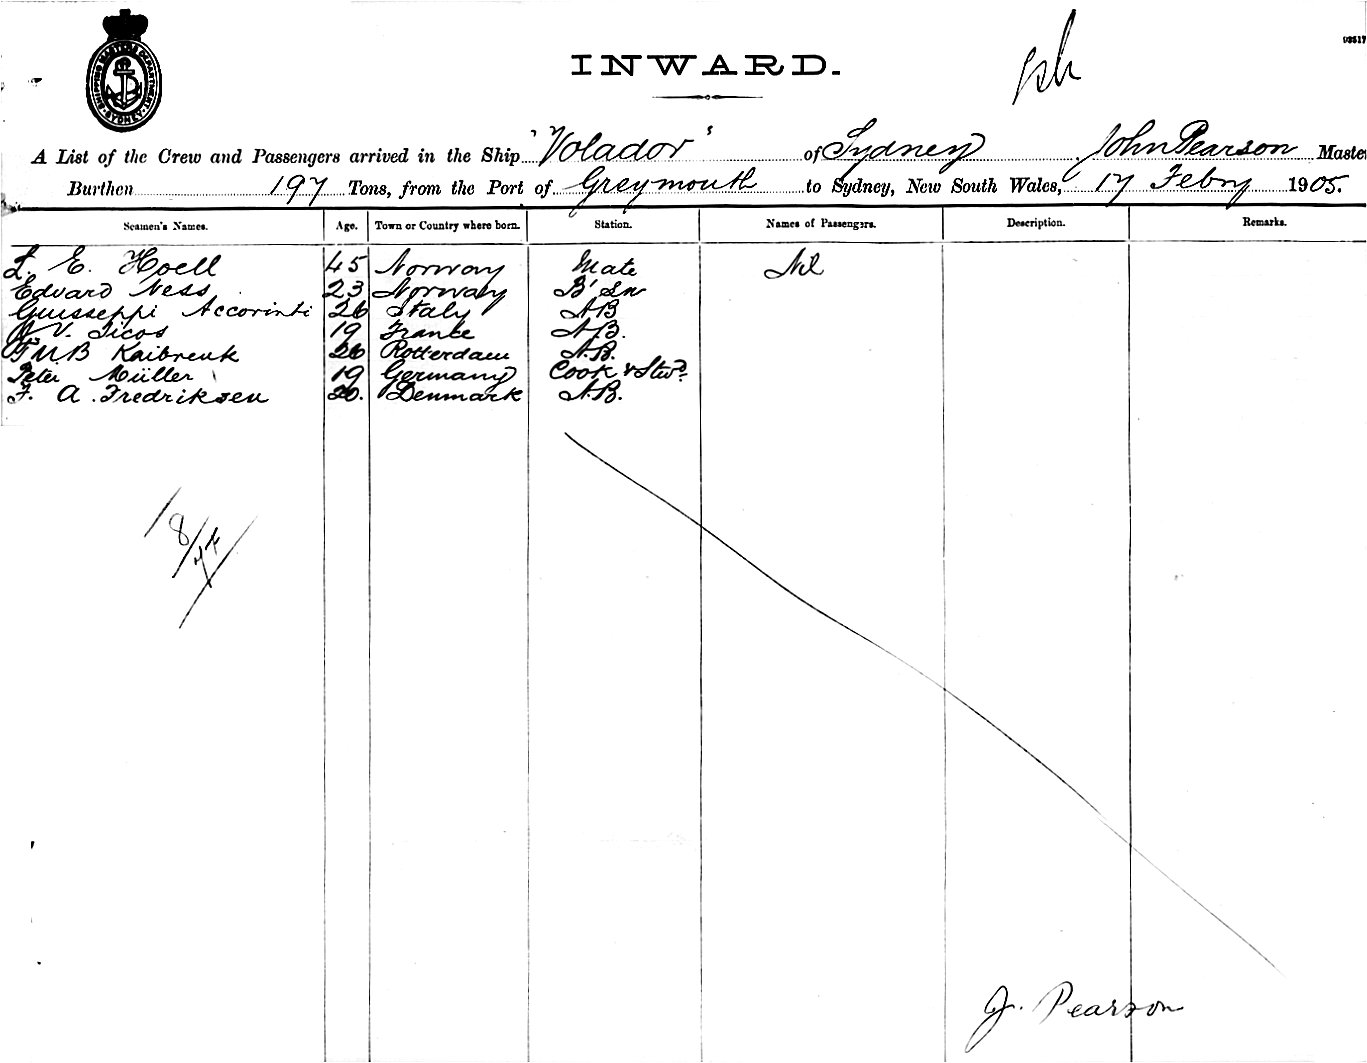 SHIPPING MASTER'S DEPARTMENT SYDNEY
INWARD.
A List of the Crew and Passengers arrived in the Ship "Volador" of Sydney John Pearson Maste
Burthen 197 Tons, from the Port of Greymouth to Sydney, New South Wales, 17 Febry 1905.
Seamen's Names. Age. Town or Country where born. Station. Names of Passengers. Description. Remarks.
L. E. Hoell 45 Norway Mate Nil
Edvard Ness 23 Norway B'Sn
Guisseppi Accorinti 26 Italy AB
V. Sicos 19 France A.B.
Kaibreuk 26 Rotterdam A.B.
Peter Müller 19 Germany Cook & Stwd.
F. A. Fredriksen 20. Denmark A.B.
J. Pearson